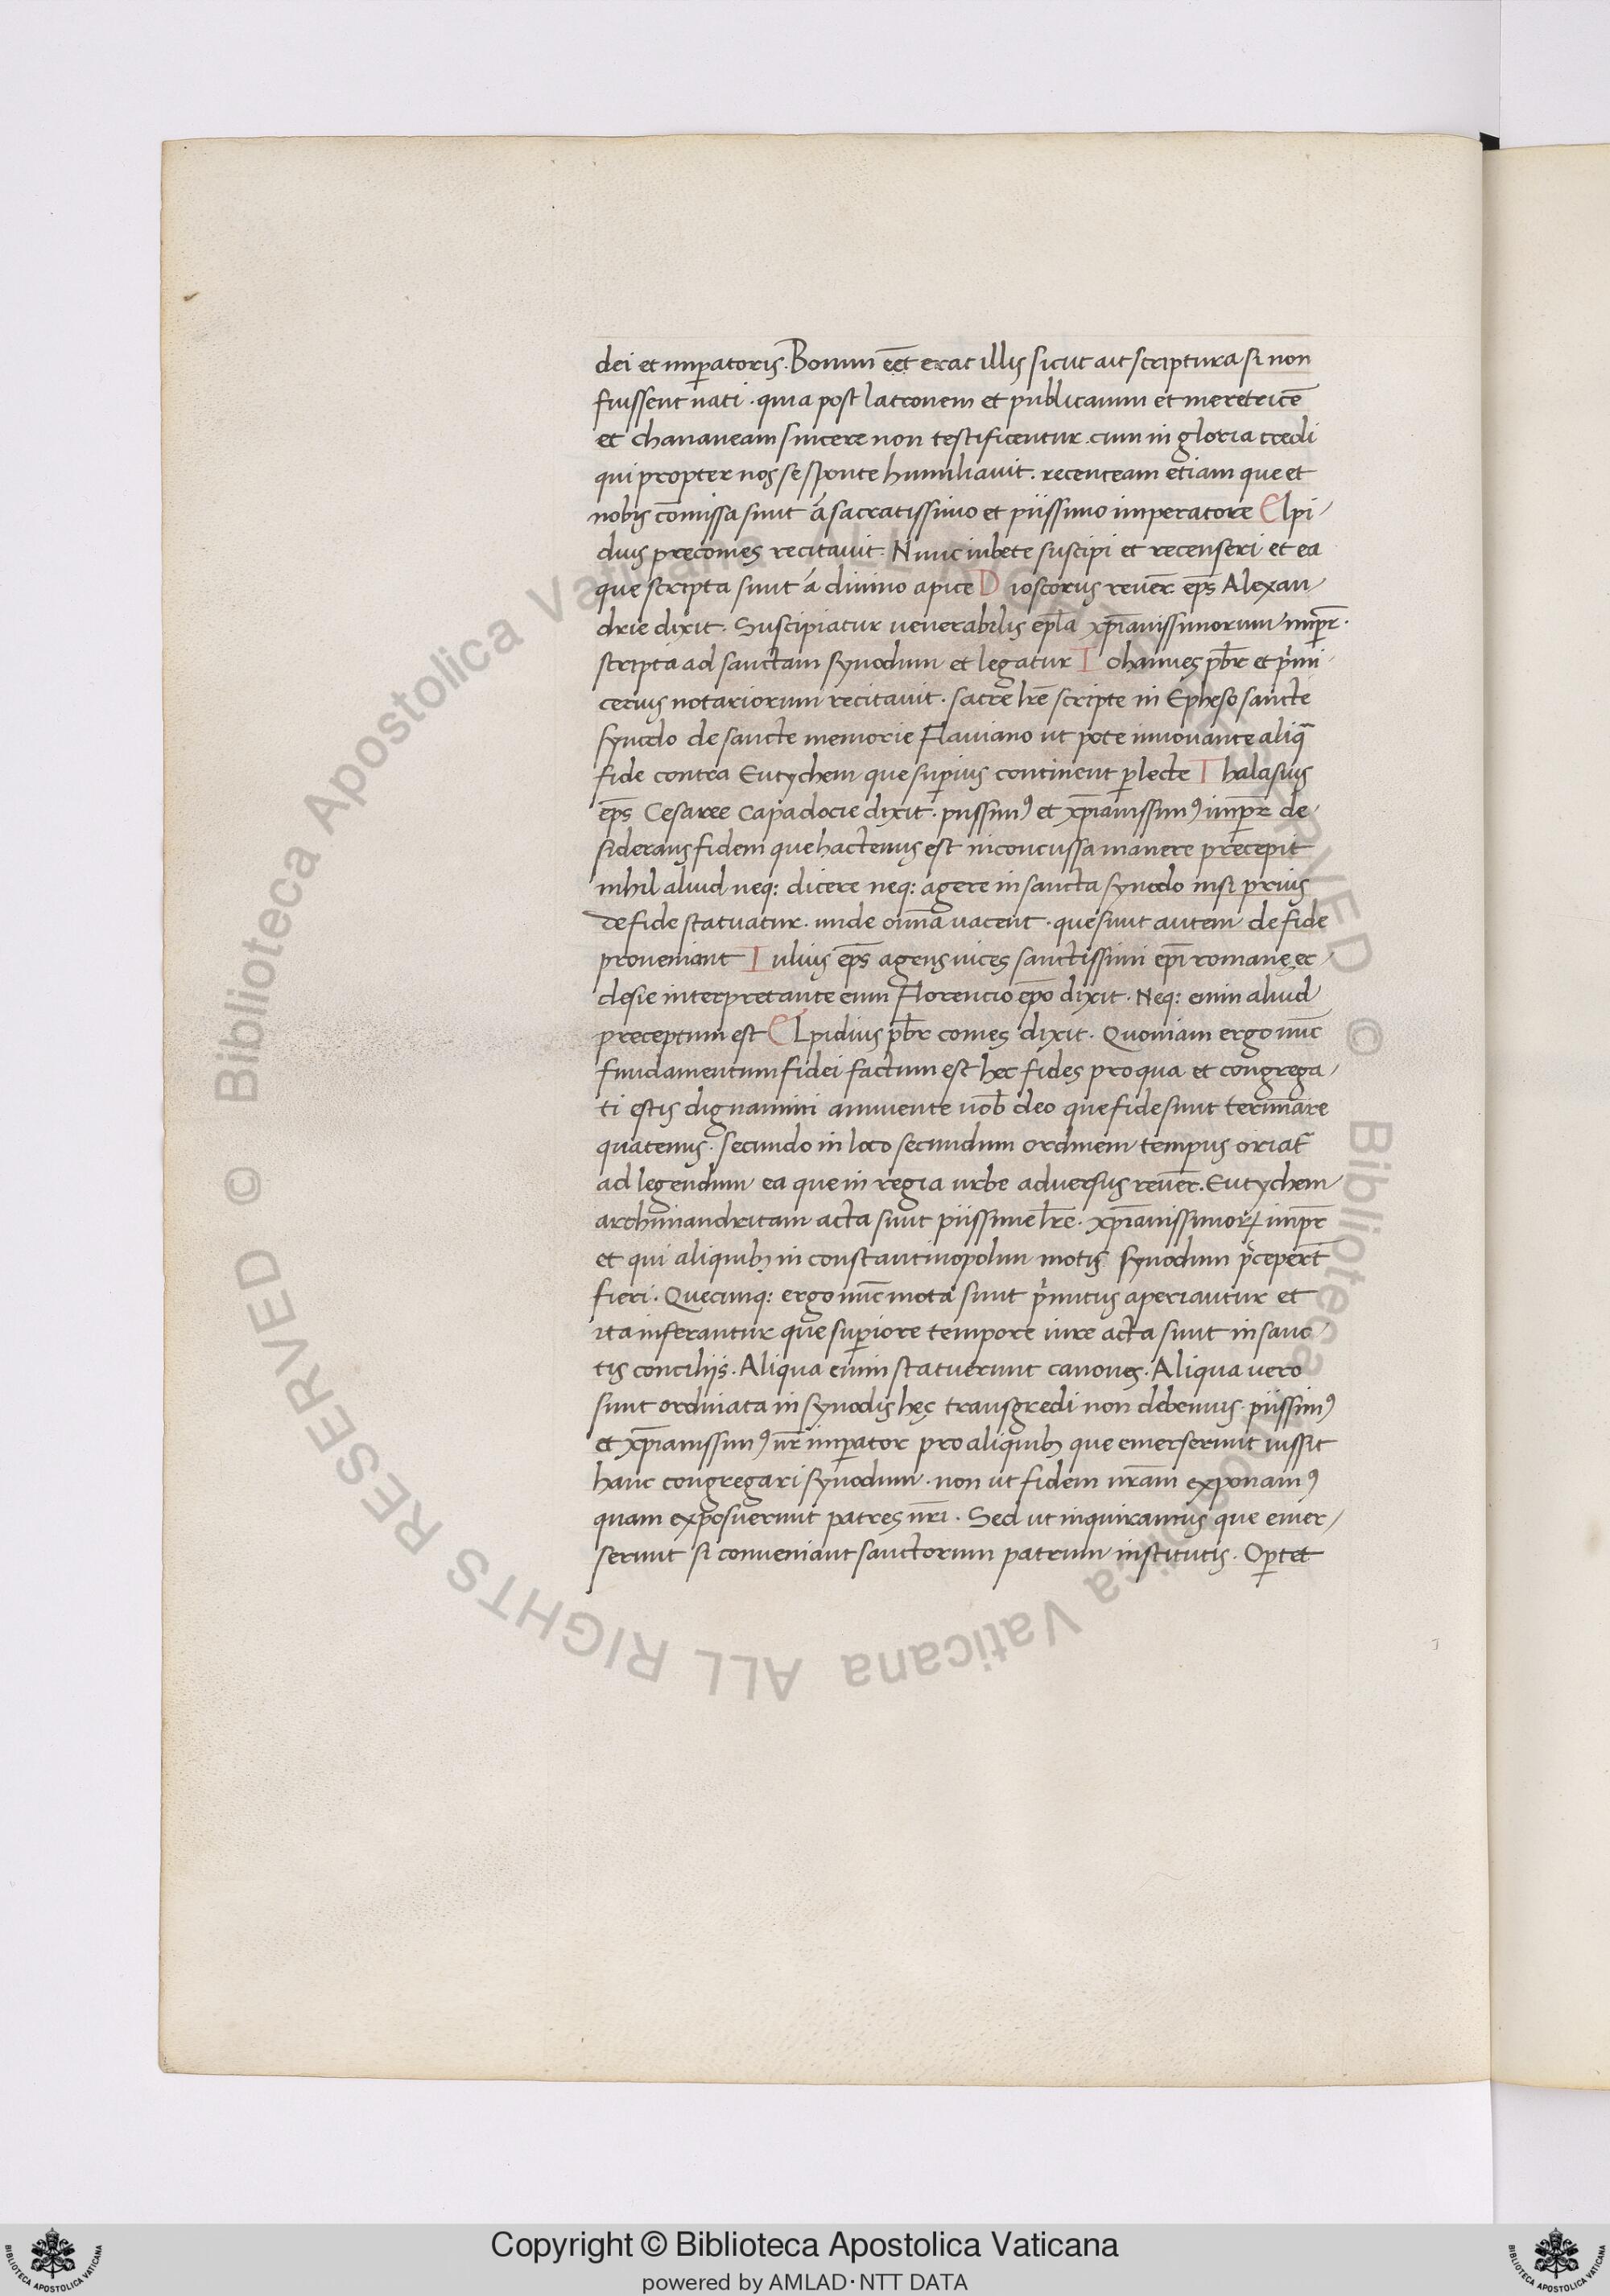 dei et imꝑatoris. Bonum eēt erat illis sicut ait scriptura si non
fuissent nati. quia post latronem et publicanum et meretricē
et chananeam sincere non testificentur. cum in gloria credi
qui propter nos se sponte humiliauit. recenteam etiam que et
nobis cōmissa sunt á sacratissimo et piissimo imperatore Elpi-
dius precomes recitauit. Nunc iubete suscipi et recenseri et ea
que scripta sunt á diuino apice Dioscorus reuer̄ ep̄s Alexan-
drie dixit. Suscipiatur uenerabilis epl̄a xp̄ianissimorum imp̄r.
scripta ad sanctam synodum et legatur Iohannes pb̄r et pͥmi-
cerius notariorum recitauit. sacre lr̄e scripte in Epheso sancte
synodo de sancte memorie Flauiano ut pote innouante aliq̄
fide contra Eutychem que suꝑius continent ꝑlecte Thalasius
ep̄s Cesaree Capadocie dixit. piissimꝰ et xp̄ianissimꝰ imp̄r de-
siderans fidem que hactenus est inconcussa manere precepit
nihil aliud neq: dicere neq: agere in sancta synodo nisi prius
de fide statuatur. unde om̄a uacent. que sunt autem de fide
proueniant Iulius ep̄s agens uices sanctissimi ep̄i romanę ec-
clesie interpretante eum Florencio ep̄o dixit. Neq: enim aliud
preceptum est Elpidius pb̄r comes dixit. Quoniam ergo nūc
fundamentum fidei factum est hec fides pro qua et congrega-
ti estis dignamini annuente uob̄ deo que fide sunt termīare
quatenus. secundo in loco secundum ordinem tempus oriat᷑
ad legendum ea que in regia urbe aduersus reuer̄. Eutychem
archimandritam acta sunt piissime lr̄e. xp̄ianissimoꝝ imp̄r
et qui aliquibꝫ in constantinopolim motis synodum p̄ceper̄t
fieri. Quecunq: ergo nūc mota sunt pͥmitus aperiantur et
ita inferantur que suꝑiore tempore iure acta sunt in sanc-
tis concilijs. Aliqua enim statuerunt canones. Aliqua uero
sunt ordinata in synodis hęc transgredi non debemus. piissimꝰ
et xp̄ianissimꝰ nr̄ imꝑator pro aliquibꝫ que emerserunt iussit
hanc congregari synodum. non ut fidem nr̄am exponamꝰ
quam exposuerunt patres nr̄i. Sed ut inquiramus que emer-
serunt si conueniant sanctorum patrum institutis. Oꝑtet
© Biblioteca Apostolica Vaticana ALL RIGHTS RESERVED © Biblioteca Apostolica Vaticana ALL RIGHTS RESERVED
Copyright © Biblioteca Apostolica Vaticana
powered by AMLAD·NTT DATA
BIBLIOTECA APOSTOLICA VATICANA
BIBLIOTECA APOSTOLICA VATICANA